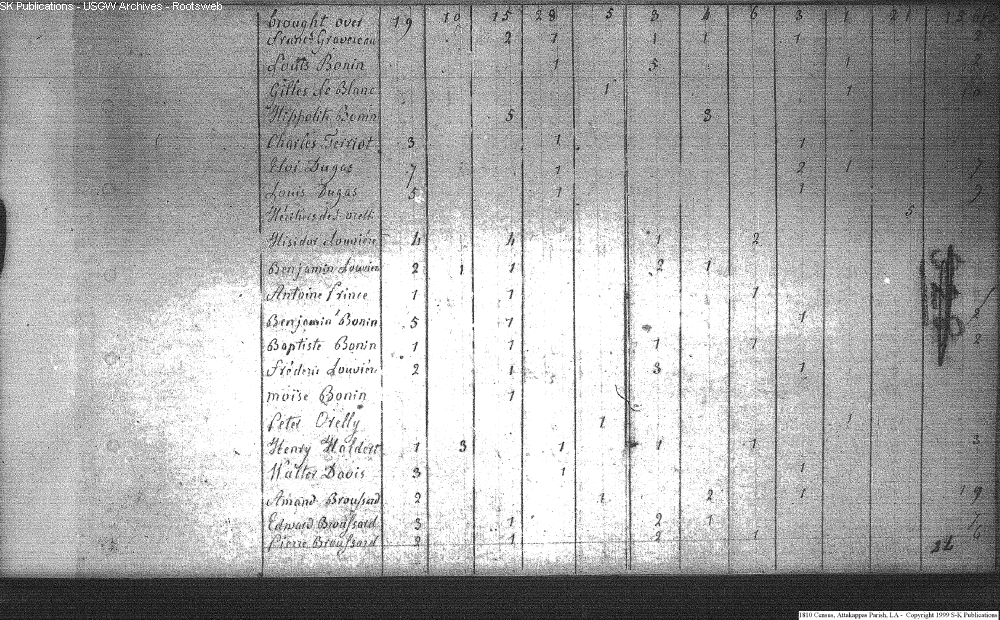 SK Publications - USGW Archives - Rootsweb
brought over 19 10 15 28 5 3 4 6 3 1 21
2 1 1 1 1 2
Louis Bonin 1 5 1 2
Gilles Le Blanc 1 1 10
Hippolite Bonin 5 3
Charles Terriot 3 1 1
Eloi Dugas 7 1 2 1 7
Louis Dugas 5 1 1
5
Hisidor Louviere 4 4 1 2
Benjamin Louvier 2 1 1 2 1
Antoine Prince 1 1 1
Benjamin Bonin 5 1 1 2
Baptiste Bonin 1 1 1 1 2
Fréderic Louvier 2 1 3 1
moïse Bonin 1
Peter Orelly 1 1
Henry 1 3 1 1 1 3
Walter Davis 3 1 1
Amand Broussard 2 1 2 1 19
Edward Broussard 3 1 2 1
Pierre Broussard 2 1 2 1 6
1810 Census, Attakappas Parish, LA - Copyright 1999 S-K Publications